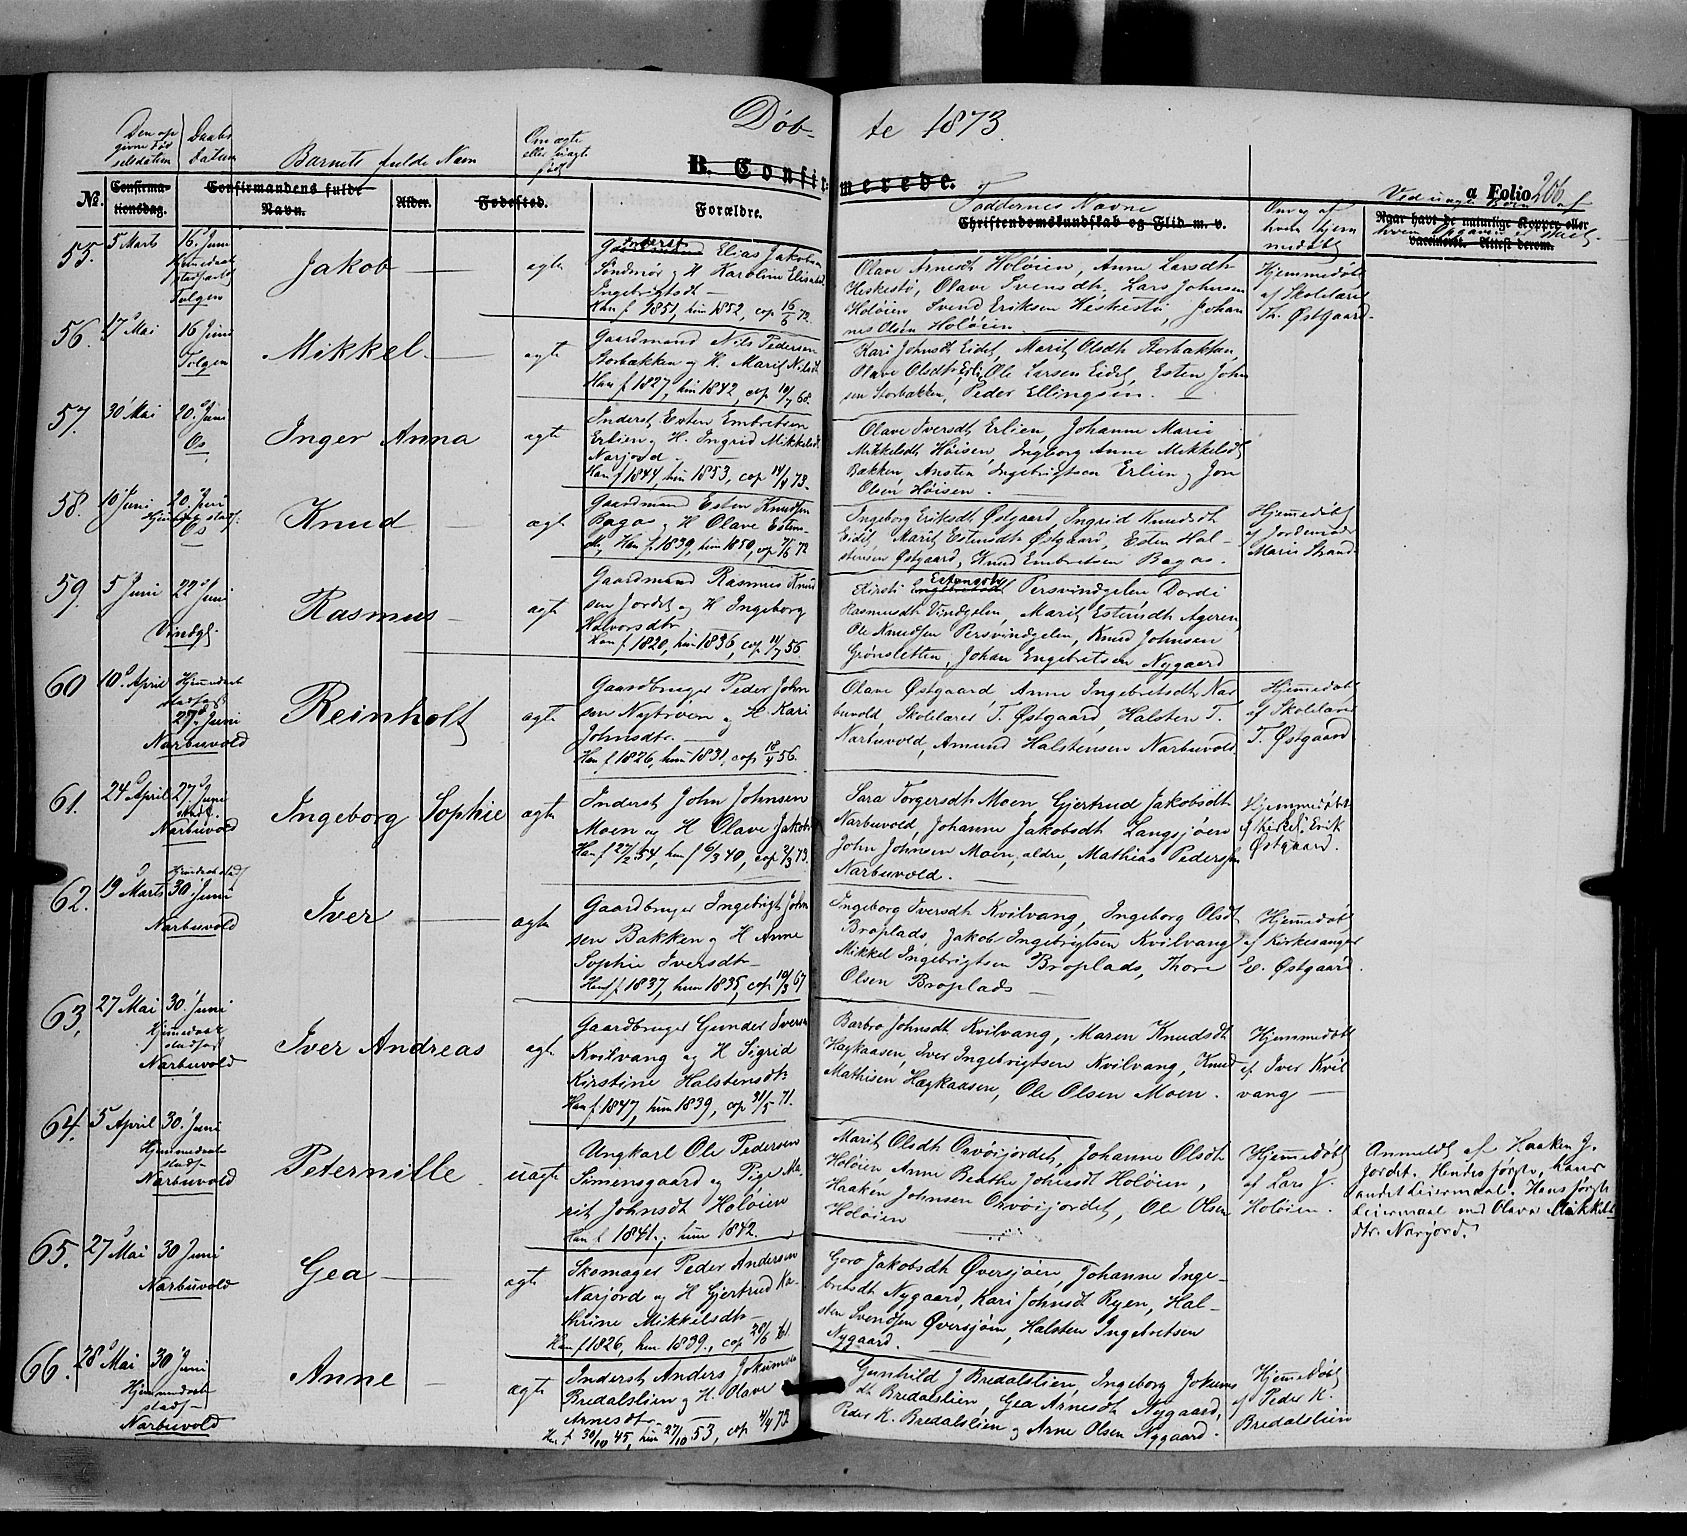 Døb-
te 1873.
B. Confir-
merede.
a Folio 206
Den op
givne Fød
selsdatum
Daabs
datum
Barnets fulde Navn
Om ægte
eller uægte
født
Faddernes Navne
Om og af
hvem hjem
medøbt
Ved uægte Børn
af
hvem Opgaven er skeet.
No.
Confirma-
tionsdag.
Confirmandens fulde
Navn.
Alder.
Fødested.
Forældre.
Christendomskundskab og Flid m. v.
Naar havt de naturlige Kopper eller
vaccineret. Attest derom.
55.
5 Marts
16 Juni
Hjemedaab
stadfæstet
Tolgen
Jakob
ægte
Gaardmand Inderst Elias Jakobsen
Søndmør og H Karoline Elisabet
Ingebrigtsdt
Han f. 1851, hun 1852, cop 16/6 72.
Olave Arnesdt Holøien, Anne Larsdtr
Heskestø, Olave Svensdt. Lars Johnsen
Holøien Svend Eriksen Heskestø, Johan
nes Olsen Holøien
Hjemmedøbt
af Skolelærer
Tr. Østgaard.
56.
17 Mai
16 Juni
Tolgen
Mikkel
ægte
Gaardmand Nils Pedersen
Storbækken og H. Marit Nilsdt
Han f 1827, hun 1842, cop 10/7 68.
Kari Johnsdt Eidet, Marit Olsdt Storbækken,
Olave Olsdt Erli, Ole Larsen Eidet, Esten John
sen Storbækken, Peder Ellingsen.
57.
30 Mai
20 Juni
Os
Inger Anna
ægte
Inderst Esten Embretsen
Erlien og H. Ingrid Mikkelsdt
Narjord
Han f 1844, hun 1853, cop 14/4 73.
Olave Iversdt Erlien, Johanne Marie
Mikkelsdt Høisen, Ingeborg Anne Mikkelsdt
Bakken, Ansten Ingebrigtsen Erlien og Jon
Olsen Høisen.
58.
10 Juni
20 Juni
Hjemedøbt stadf.
Os
Knud
ægt
Gaardmand Esten Knudsen
Bagas og H Olave Estens
dt, Han f. 1839, hun 1850, cop 21/6 72
Ingeborg Eriksdt Østgaard, Ingrid Knudsdt
Eidet, Marit Estensdt Østgaard, Esten Hal-
stensen Østgaard, Knud Embretsen Bagas.
Hjemmedøbt
af Jordemoder
Marie Strand
59.
5 Juni
22 Juni
Vindgl.
Rasmus
ægte
Gaardmand Rasmus Knud
sen Jordet og H Ingeborg
Halvorsdtr
Han f. 1820, hun 1836, cop 11/7 56.
Kirsti Ingebretsdt Estensdt Persvindgelen Dordi
Rasmusdt Vindgelen, Marit Estensdt Ageren,
Ole Knudsen Persvindgelen, Knud Johnsen
Grønsletten, Johan Engebretsen Nygaard
60
10 April
Hjemmedaab
stadfæs
27 Juni
Narbuvold
Reinholt
ægte
Gaardbruger Peder John
sen Nytrøen og H. Kari
Johnsdtr
Han f. 1826, hun 1831, cop 18/4 56.
Olave Østgaard Anne Ingebretsdt Nar
buvold, Skolelærer T. Østgaard, Halsten T.
Narbuvold, Amund Halstensen Narbuvold
Hjemmedøbt
af Skolelærer
T. Østgaard
61.
24 April
27 Juni
stadf.
Narbuvold
Ingeborg Sophie
ægte
Inderst John Johnsen
Moen og H Olave Jakobs
Han f 27/2 54, hun f 6/3 40, cop 2/3 73.
Sara Torgersdt Moen Gjertrud Jakobsdt
Narbuvold, Johanne Jakobsdt Langsjøen
John Johnsen Moen, ældre, Mathias Pedersen
Narbuvold.
Hjemmedøbt
af Kirkes. Erik
Østgaard.
62.
19 Marts
30 Juni
Narbuvold
Iver
ægte
Gaardbruger Ingebrigt John
sen Bakken og H Anne
Sophie Iversdtr
Han f. 1837, hun 1835, cop 10/3 67
Ingeborg Iversdt Kvilvang, Ingeborg Olsdt
Broplads, Jakob Ingebrigtsen Kvilvang
Mikkel Ingebrigtsen Broplads, Thore
Olsen Broplads
Hjemmedøbt
af Kirkesanger
E. Østgaard.
63.
27 Mai
30 Juni
Hjemmedaab
stadfæst
Narbuvold
Iver Andreas
ægt
Gaardbruger Gunder Iversen
Kvilvang og H Sigrid
Kirstine Halstensdt
Han f. 1847, hun 1839, cop 31/5 71.
Barbro Johnsdt Kvilvang, Maren Knudsdt
Hægkaasen, Iver Ingebrigtsen Kvilvang, Knud
Mathisen Hægkaasen, Ole Olsen Moen.
Hjemmedøbt
af Iver Kvil
vang
64.
5 April
30 Juni
Hjemmedaab
stadf
Narbuvold
Peternille
uægte
Ungkarl Ole Pedersen
Simensgaard og Pige Ma
rit Johnsdt Holøien
Han f. 1841, hun 1842.
Marit Olsdt Orvøsjordet, Johanne Olsdt
Holøien Anne Beathe Johnsdt Holøien,
Haaken Johnsen Orvøsjordet, Ole Olsen
Holøien
Hjemmedøbt
af Lars J.
Holøien.
Anmeldt af Haaken J.
Jordet. Hendes første, hans
andet Leiermaal. Hans første
Leiermaal med Olava Mikkels
dtr. Narjord.
65.
27 Mai
30 Juni
Narbuvold
Gea
ægte
Skomager Peder Andersen
Narjord og H Gjertrud Ka-
thrine Mikkelsdtr
Han f 1826, hun 1839, cop 28/6 61.
Goro Jakobsdt Øversjøen, Johanne Inge-
bretsdt Nygaard, Kari Johnsdt Ryen, Hal-
sten Svendsen Øversjøen, Halsten Ingebretsen
Nygaard.
66.
28 Mai
30 Juni
Hjemmedaab
stadf
Narbuvold
Anne
ægte
Inderst Anders Jokumsen
Bredalslien og H. Olave
Arnesdt
Han f 30/10 45, hun 27/10 53, cop 4/4 73
Gunhild J Bredalslien, Ingeborg Jokums
dt Bredalslien, Gea Arnesdt Nygaard,
Peder K. Bredalslien og Arne Olsen Nygaard.
Hjemmedøbt
af Peder K.
Bredalslien